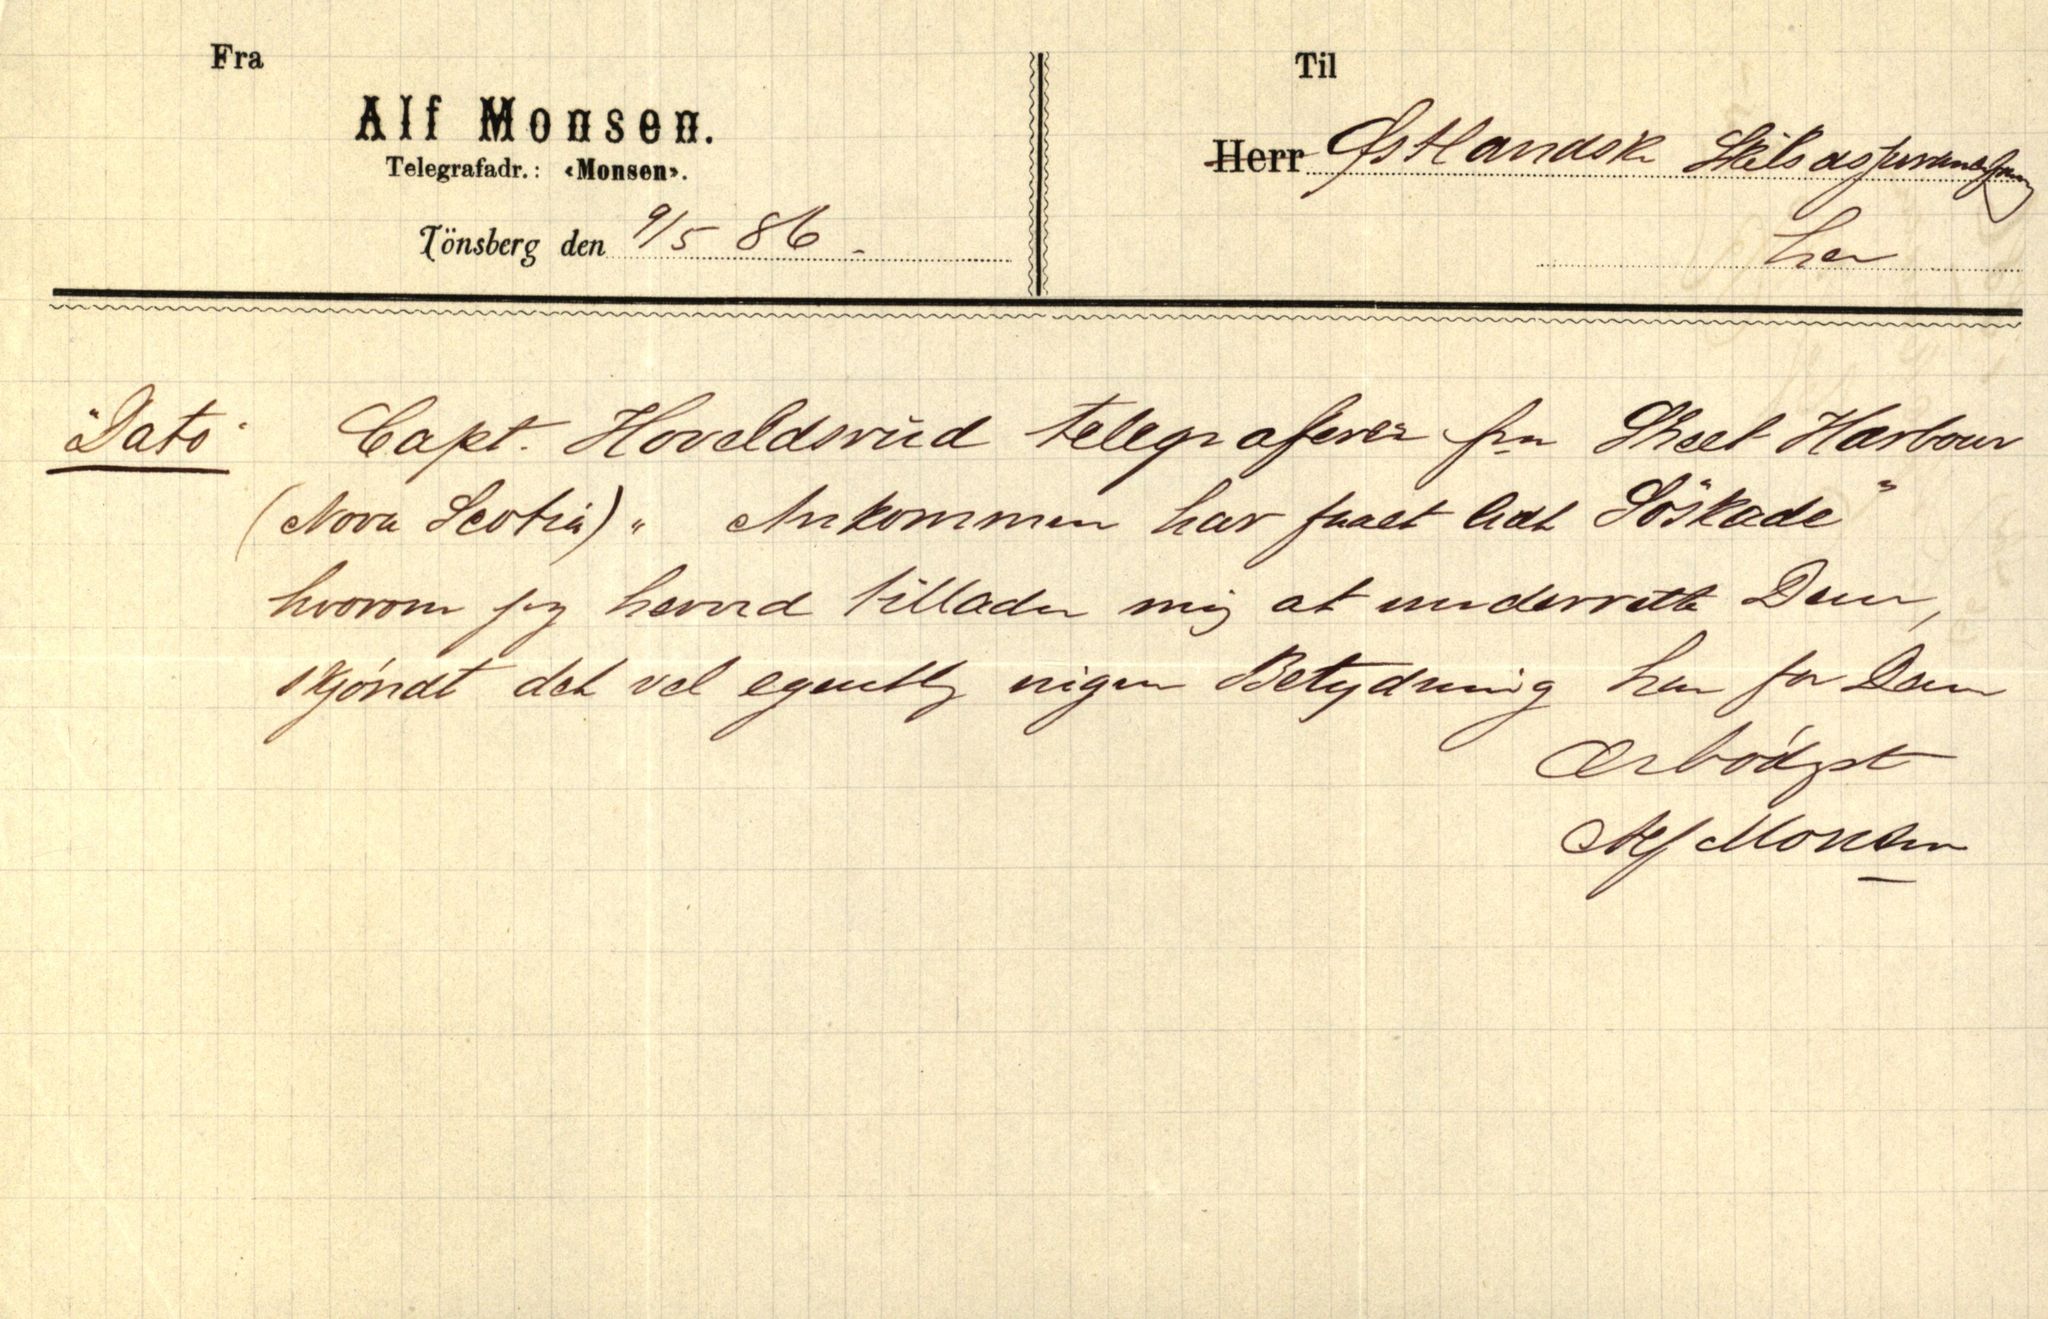 Fra
Alf Monsen.
Telegrafadr.: «Monsen».
Tönsberg den 9/5 86.
Til
Herr Østlandske Skibsassuranceforening
her
"Dato" Capt. Hoveldsrud telegraferer fra Sheet Harbour
(Nova Scotia) " Ankommen har faaet lidt Söskade"
hvorom jeg herved tillader mig at underrette Dem,
skjöndt det vel egentlig ingen Betydning har for Dem
Ærbödigst
Alf Monsen